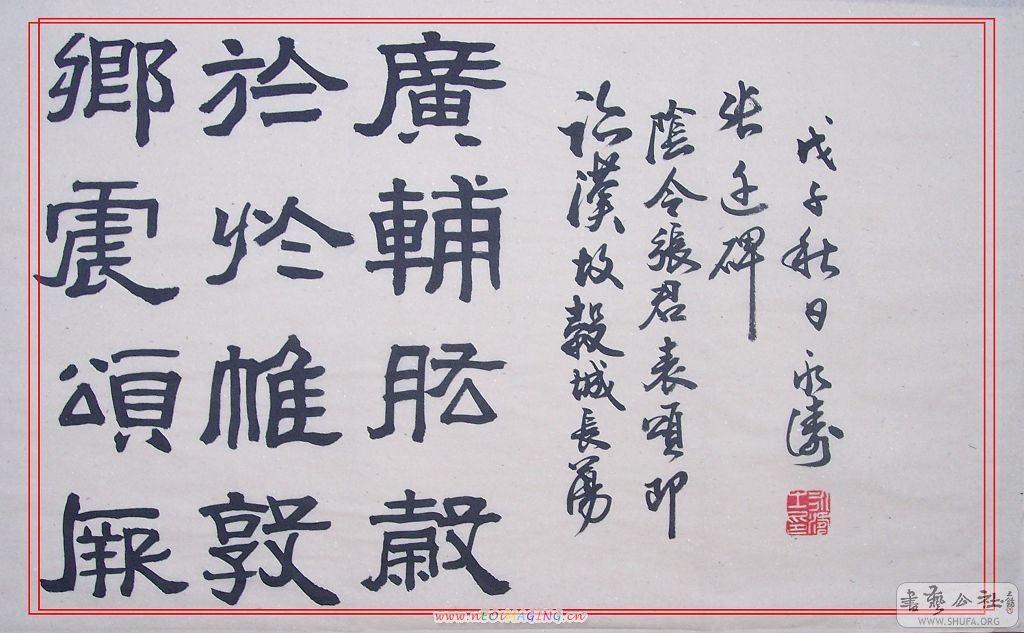 鄉震頌
於帷敦
廣輔肱
临漢故穀城長蕩
陰令張君表頌即
张迁碑
戊子秋日永濤
書藝公社
WWW.SHUFA.ORG
www.nEOIMAGING.cn